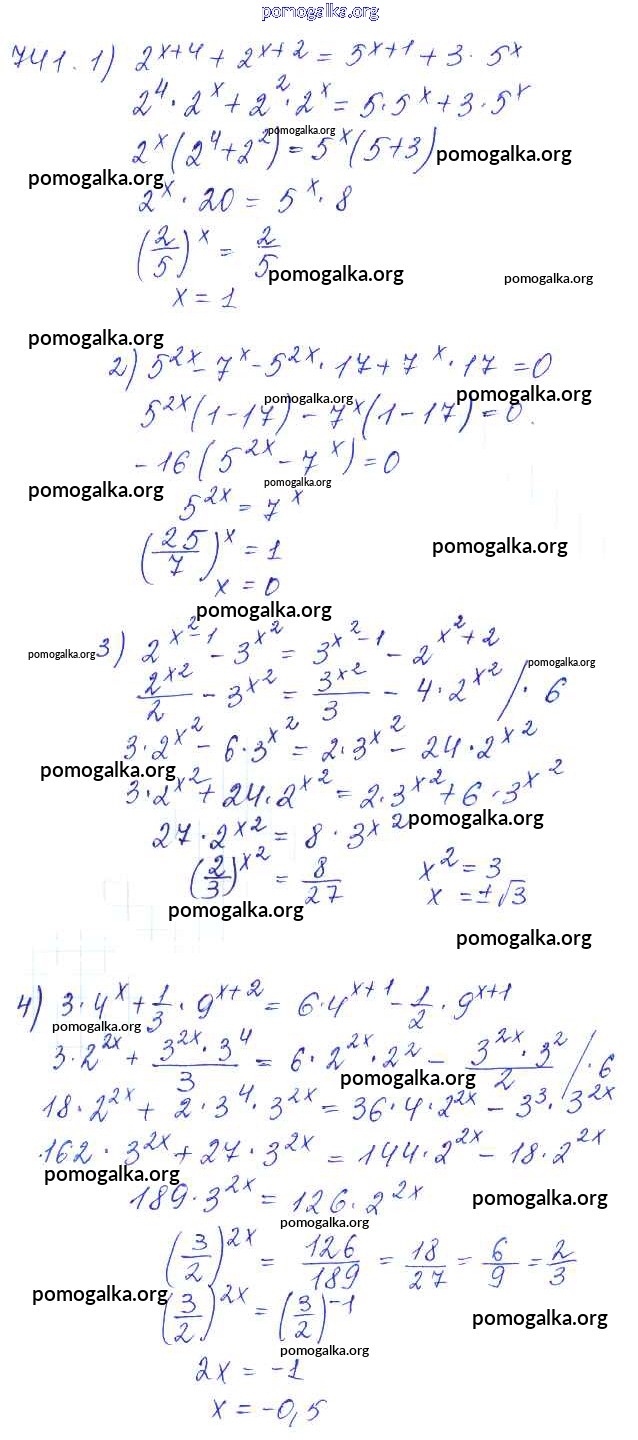 pomogalka.org
741. 1) 2^(x+4) + 2^(x+2) = 5^(x+1) + 3 · 5^x
2^4 · 2^x + 2^2 · 2^x = 5 · 5^x + 3 · 5^x
pomogalka.org
2^x (2^4 + 2^2) = 5^x (5+3) pomogalka.org
pomogalka.org
2^x · 20 = 5^x · 8
(2/5)^x = 2/5
pomogalka.org pomogalka.org
x = 1
pomogalka.org
2) 5^(2x) - 7^x - 5^(2x) · 17 + 7^x · 17 = 0
pomogalka.org pomogalka.org
5^(2x) (1-17) - 7^x (1-17) = 0.
-16 (5^(2x) - 7^x) = 0
pomogalka.org pomogalka.org
5^(2x) = 7^x
(25/7)^x = 1 pomogalka.org
x = 0
pomogalka.org
pomogalka.org 3) 2^(x^2-1) - 3^(x^2) = 3^(x^2-1) - 2^(x^2+2)
pomogalka.org
2^(x^2)/2 - 3^(x^2) = 3^(x^2)/3 - 4 · 2^(x^2) / · 6
3 · 2^(x^2) - 6 · 3^(x^2) = 2 · 3^(x^2) - 24 · 2^(x^2)
pomogalka.org
3 · 2^(x^2) + 24 · 2^(x^2) = 2 · 3^(x^2) + 6 · 3^(x^2)
pomogalka.org
27 · 2^(x^2) = 8 · 3^(x^2)
(2/3)^(x^2) = 8/27 x^2 = 3
x = ±√3
pomogalka.org
pomogalka.org
4) 3 · 4^x + 1/3 · 9^(x+2) = 6 · 4^(x+1) - 1/2 · 9^(x+1)
pomogalka.org
3 · 2^(2x) + (3^(2x) · 3^4)/3 = 6 · 2^(2x) · 2^2 - (3^(2x) · 3^2)/2 / · 6
pomogalka.org
18 · 2^(2x) + 2 · 3^4 · 3^(2x) = 36 · 4 · 2^(2x) - 3^3 · 3^(2x)
162 · 3^(2x) + 27 · 3^(2x) = 144 · 2^(2x) - 18 · 2^(2x)
pomogalka.org
189 · 3^(2x) = 126 · 2^(2x) pomogalka.org
pomogalka.org
(3/2)^(2x) = 126/189 = 18/27 = 6/9 = 2/3
pomogalka.org
(3/2)^(2x) = (3/2)^(-1) pomogalka.org
pomogalka.org
2x = -1
pomogalka.org
x = -0,5